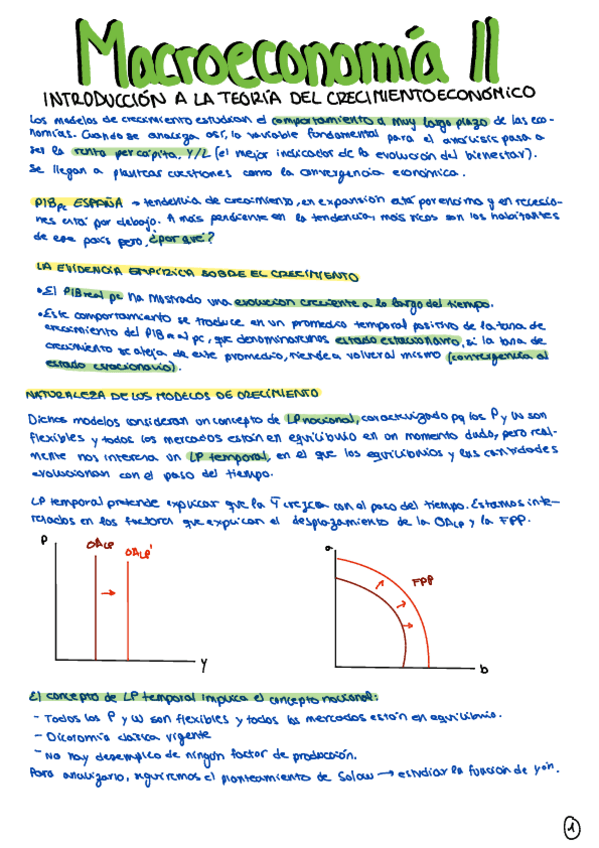 Macroeconomía II
INTRODUCCIÓN A LA TEORÍA DEL CRECIMIENTO ECONÓMICO
Los modelos de crecimiento estudian el comportamiento a muy largo plazo de las eco-
nomías. Cuando se analiza así, la variable fundamental para el análisis pasa a
ser la renta per cápita, Y/L (el mejor indicador de la evolución del bienestar).
Se llegan a plantear cuestiones como la convergencia económica.
PIBpc ESPAÑA → tendencia de crecimiento, en expansión está por encima y en recesio-
nes está por debajo. A más pendiente en la tendencia, más ricos son los habitantes
de ese país pero, ¿por qué?
LA EVIDENCIA EMPÍRICA SOBRE EL CRECIMIENTO
• El PIB real pc ha mostrado una evolución creciente a lo largo del tiempo.
• Este comportamiento se traduce en un promedio temporal positivo de la tasa de
crecimiento del PIB real pc, que denominaremos estado estacionario, si la tasa de
crecimiento se aleja de este promedio, tiende a volver al mismo (convergencia al
estado estacionario).
NATURALEZA DE LOS MODELOS DE CRECIMIENTO
Dichos modelos consideran un concepto de LP nocional, caracterizado pq los P y W son
flexibles y todos los mercados están en equilibrio en un momento dado, pero real-
mente nos interesa un LP temporal, en el que los equilibrios y las cantidades
evolucionan con el paso del tiempo.
LP temporal pretende explicar que la Ȳ crezca con el paso del tiempo. Estamos inte-
resados en los factores que expliquen el desplazamiento de la OALP y la FPP.
P
OALP
OALP'
Y
a
FPP
b
El concepto de LP temporal implica el concepto nocional:
- Todos los P y W son flexibles y todos los mercados están en equilibrio.
- Dicotomía clásica vigente
- No hay desempleo de ningún factor de producción.
Para analizarlo, seguiremos el planteamiento de Solow → estudiar la función de yoin.
1